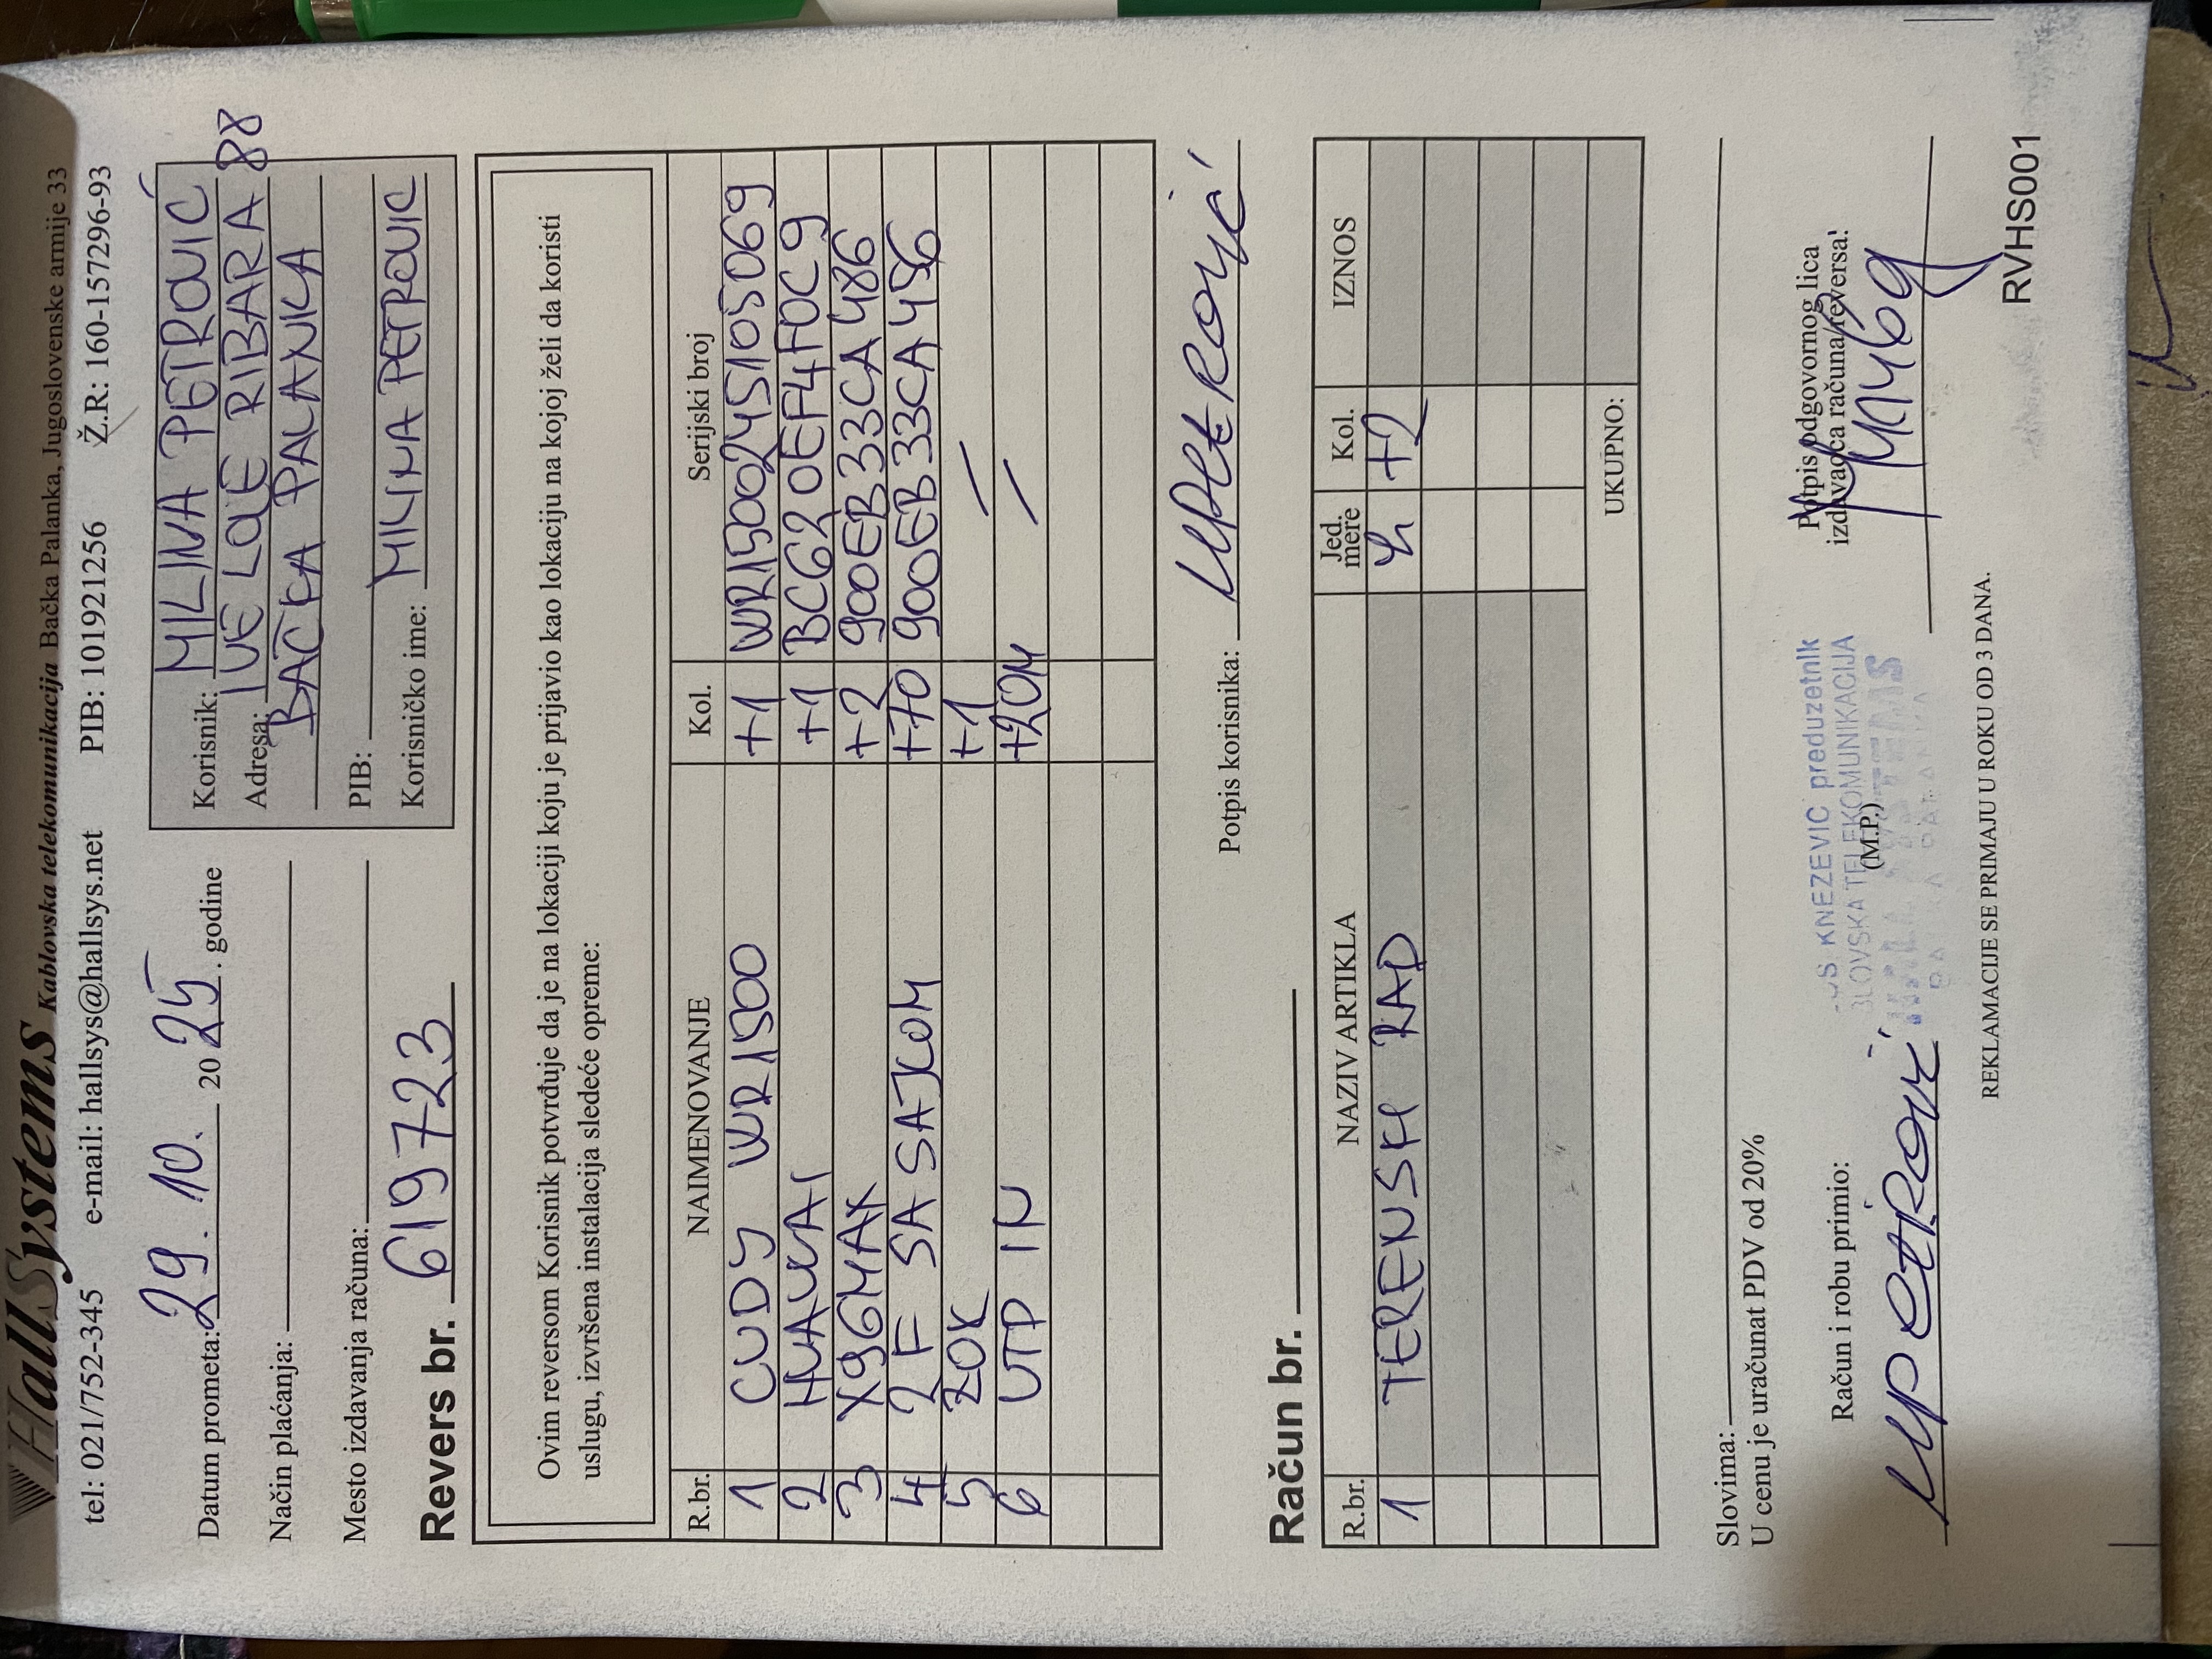 HallSystems Kablovska telekomunikacija Bačka Palanka, Jugoslovenske armije 33
tel: 021/752-345 e-mail: hallsys@hallsys.net PIB: 101921256 Ž.R: 160-157296-93
Datum prometa: 29. 10. 20 25. godine
Način plaćanja:
Mesto izdavanja računa:
Revers br. 619723
Korisnik: MILINA PETROVIĆ
Adresa: IVE LOLE RIBARA 88
BAČKA PALANKA
PIB:
Korisničko ime: MILINA PETROVIC
Ovim reversom Korisnik potvrđuje da je na lokaciji koju je prijavio kao lokaciju na kojoj želi da koristi
uslugu, izvršena instalacija sledeće opreme:
R.br. NAIMENOVANJE Kol. Serijski broj
1 CUDY WR1500 +1 WR1500245105069
2 HUAWAI +1 BC620EF4F0C9
3 X96MAX +2 900EB33CA486
4 2F SA SAJLOM +70 900EB33CA456
5 ZOK +1 /
6 UTP IN +20M /
Potpis korisnika: MPetrović
Račun br.
R.br. NAZIV ARTIKLA Jed. mere Kol. IZNOS
1 TERENSKI RAD h +2
UKUPNO:
Slovima:
U cenu je uračunat PDV od 20%
Račun i robu primio:
MPetRović
KNEZEVIC preduzetnik
LOVSKA TELEKOMUNIKACIJA
(M.P.)
Potpis odgovornog lica
izdavaoca računa/reversa:
REKLAMACIJE SE PRIMAJU U ROKU OD 3 DANA.
RVHS001